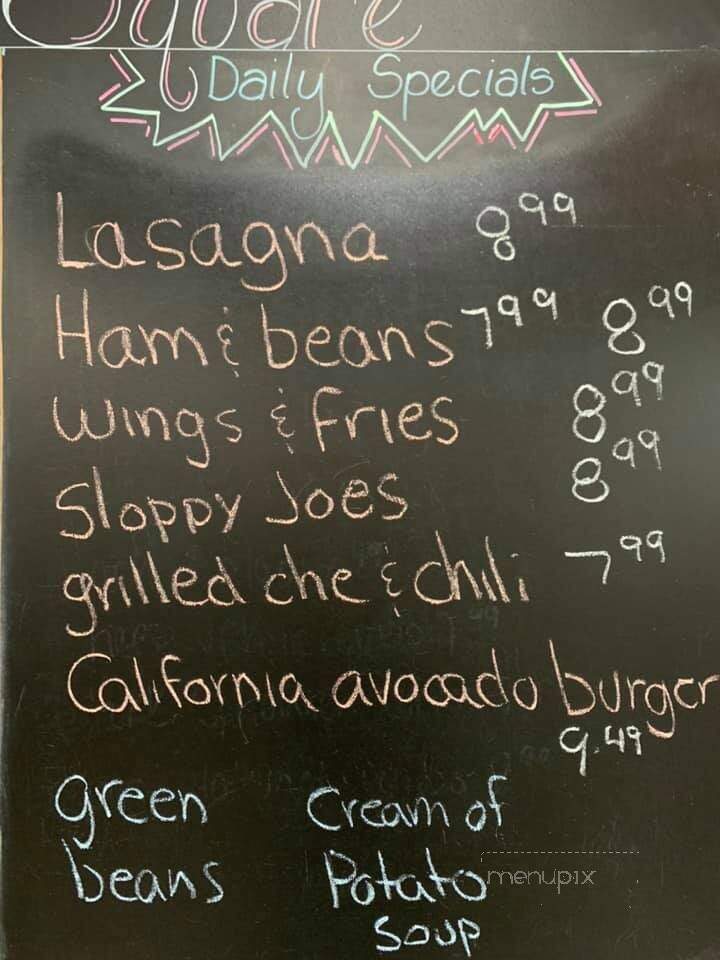 Square
Daily Specials
Lasagna 8.99
Ham & beans 7.99 8.99
Wings & fries 8.99
Sloppy Joes 8.99
grilled che & chili 7.99
California avocado burger
9.49
green Cream of
beans Potato
soup
menupix